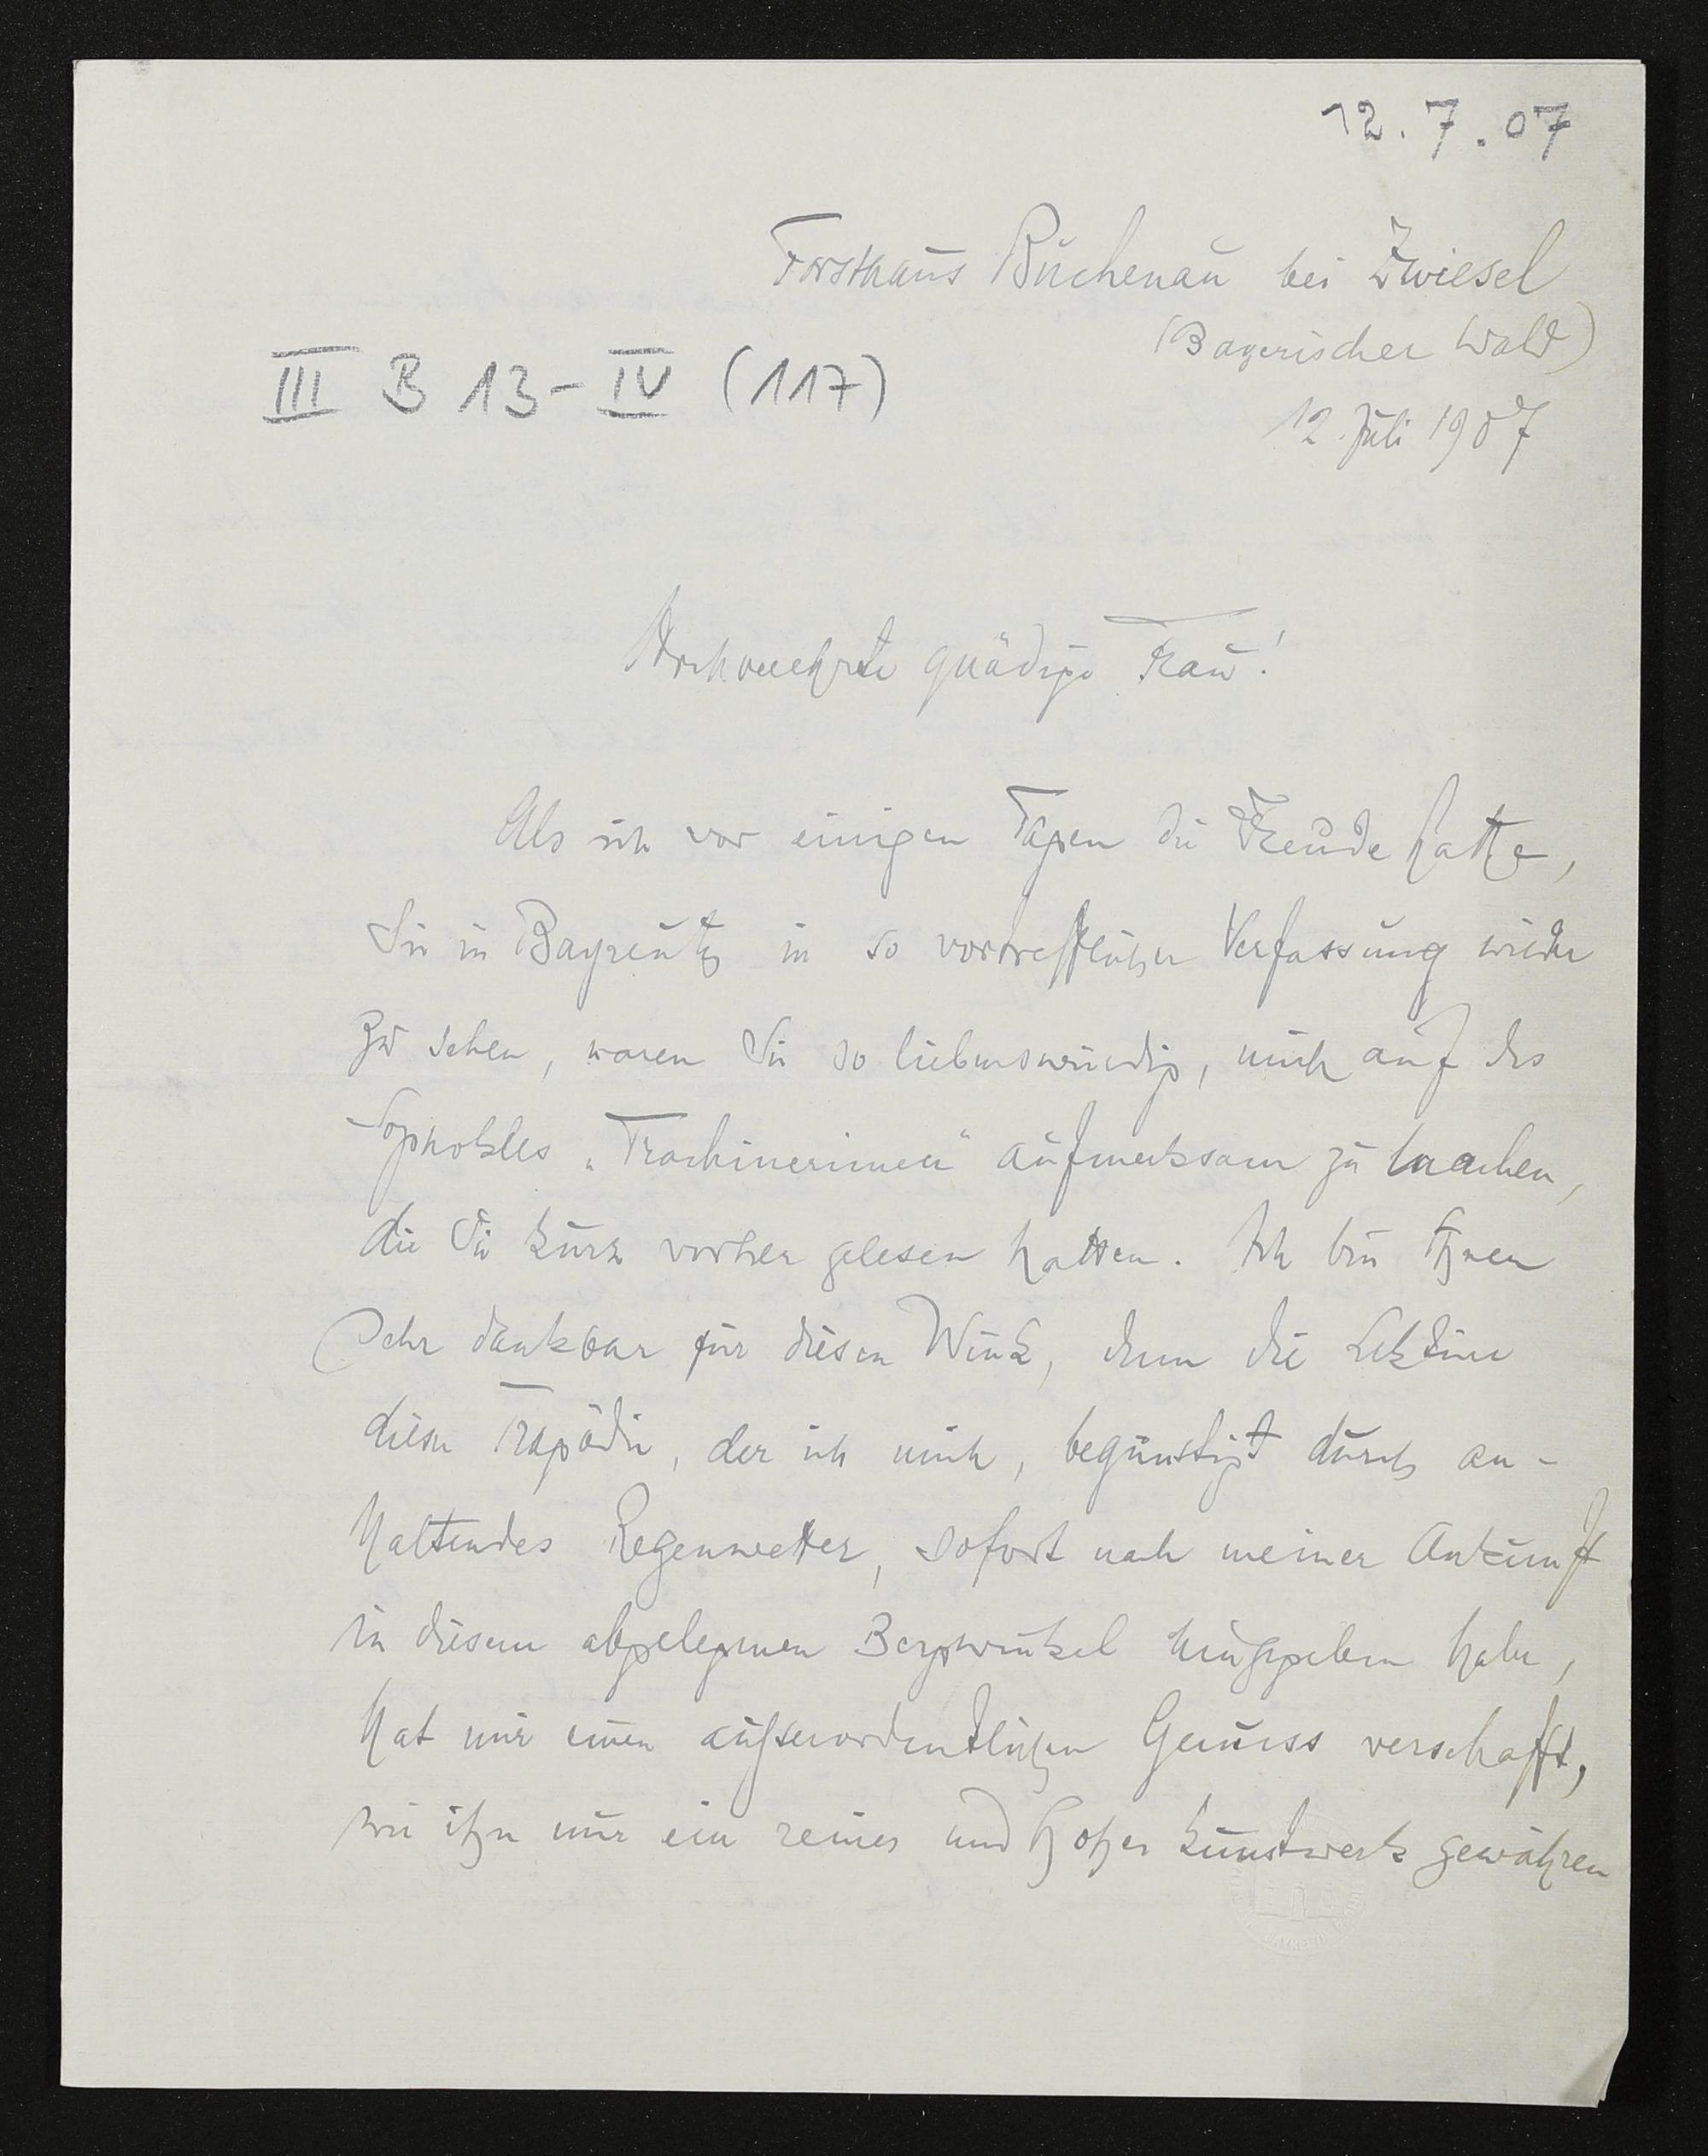 12.7.07
Forsthaus Buchenau bei Zwiesel
(Bayerischer Wald)
III B 13-IV (117)
12. Juli 1907
Hochverehrte gnädige Frau!
Als ich vor einigen Tagen die Freude hatte,
Sie in Bayreuth in so vortrefflicher Verfassung wieder
zu sehen, waren Sie so liebenswürdig, mich auf des
Sophokles „Trachinerinnen" aufmerksam zu machen,
die Sie kurz vorher gelesen hatten. Ich bin Ihnen
sehr dankbar für diesen Wink, denn die Lektüre
dieser Tragödie, der ich mich, begünstigt durch an-
haltendes Regenwetter, sofort nach meiner Ankunft
in diesem abgelegenen Bergwinkel hingegeben habe,
hat mir einen außerordentlichen Genuss verschafft,
wie ihn nur ein reines und hohes Kunstwerk gewähren